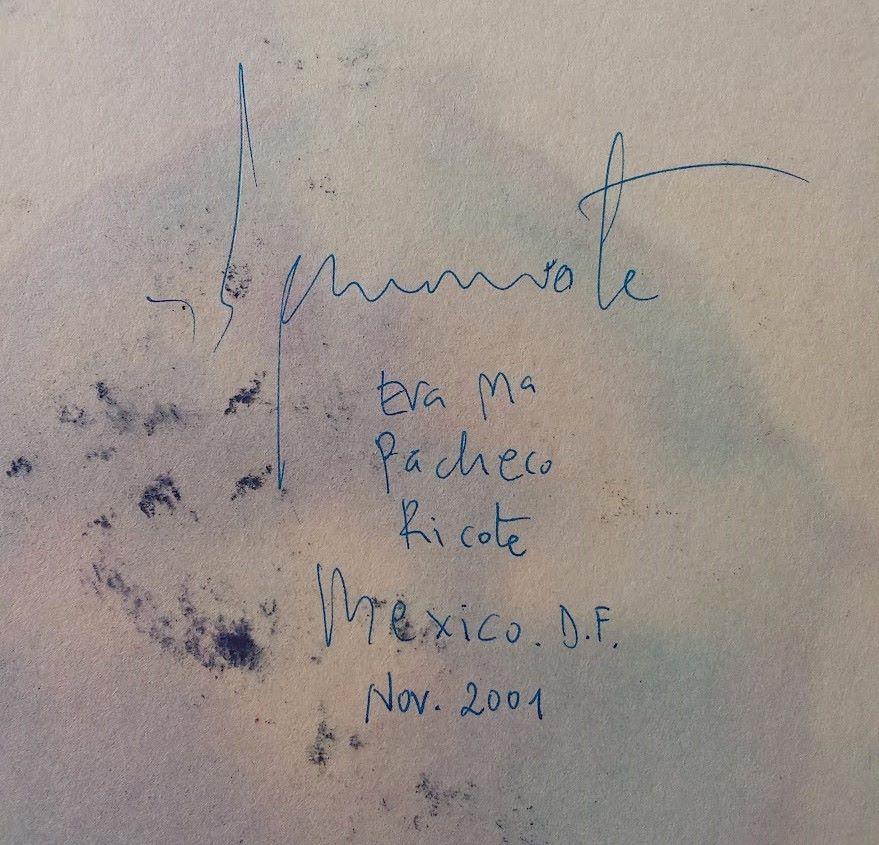 Eva Mª
Pacheco
Ricote
Mexico. D.F.
Nov. 2001